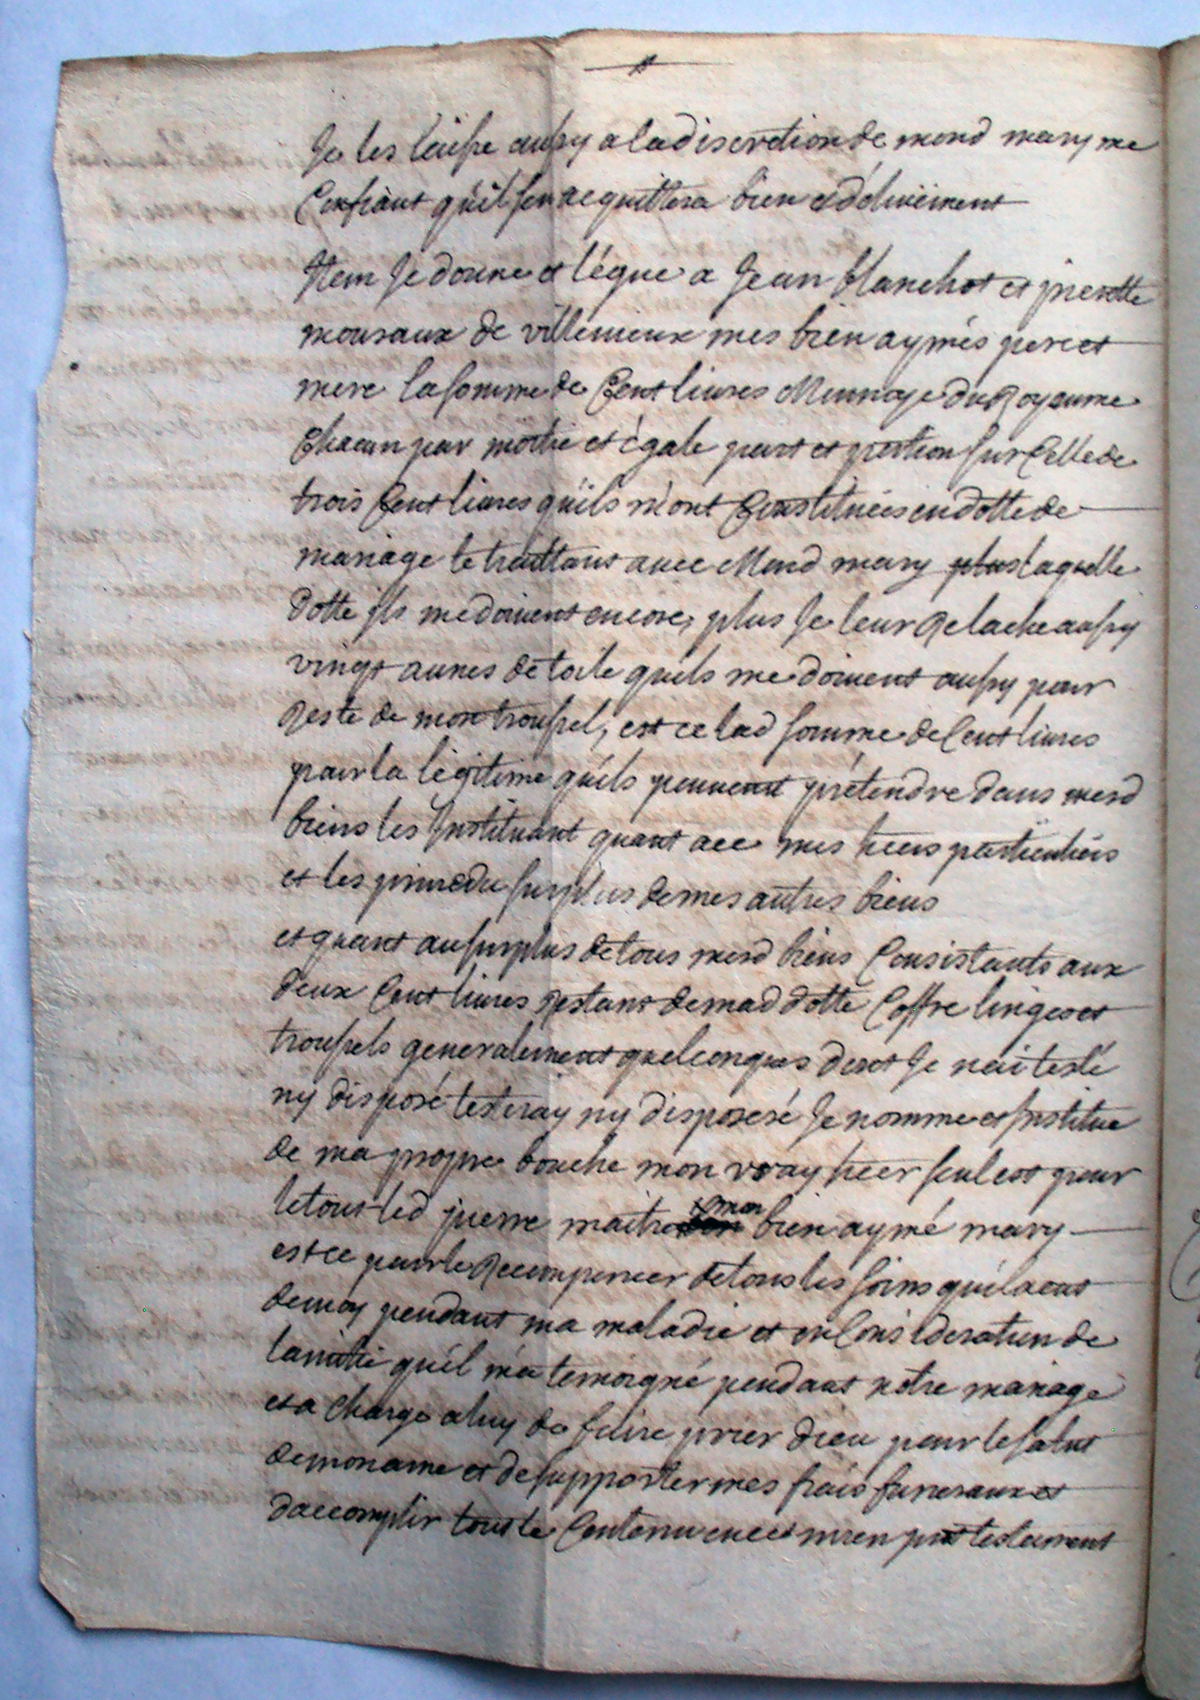 Je les laisse aussy a la discretion de mond mary me
Confiant quil sen acquittera bien et dehuement
Item Je donne et lègue a Jean blanchot et pierrette
mousaux de villemeux mes bien aymés pere et
mere la somme de Cent livres Monnoye du Royaume
Chacun par moitié et ègale part et portion sur Celle de
trois Cent livres quils m'ont Constituées en dotte de
mariage le traittant avec Mond mary plus laquelle
dotte jls me doivent encore, plus Je leur Relache aussy
vingt aunes de toile quils me doivent aussy pour
Reste de mon troussel, est ce lad somme de Cent livres
pour la légitime quils peuvent prétendre dans mesd
biens les Instituant quant a ce mes heers particuliers
et les prive du surplus de mes autres biens
et quant au surplus de tous mesd biens Consistants aux
deux Cent livres restant de mad dotte Coffre linges et
troussels generalement quelconques dont Je nai testé
ny disposé testeray ny disposeré Je nomme et Institue
de ma propre bouche mon vray heer seul est pour
le tout led pierre maitre mon bien aymé mary
est ce pour le Recompencer de tous les soins quil a eut
de moy pendant ma maladie et en Consideration de
lamitié quil m'a temoigné pendant notre mariage
et a Charge a luy de faire prier dieu pour le salut
de mon ame et de supporter mes frais funeraux et
daccomplir tout le Contenu en ce mien pnt testament